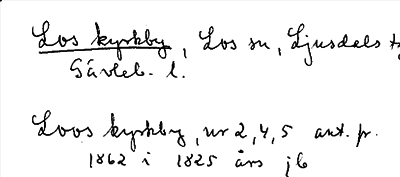 Los kyrkby, Los sn, Ljusdals t
Gävleb. l.
Loos kyrkby, nr 2, 4, 5 ant. pr.
1862 i 1825 års jb